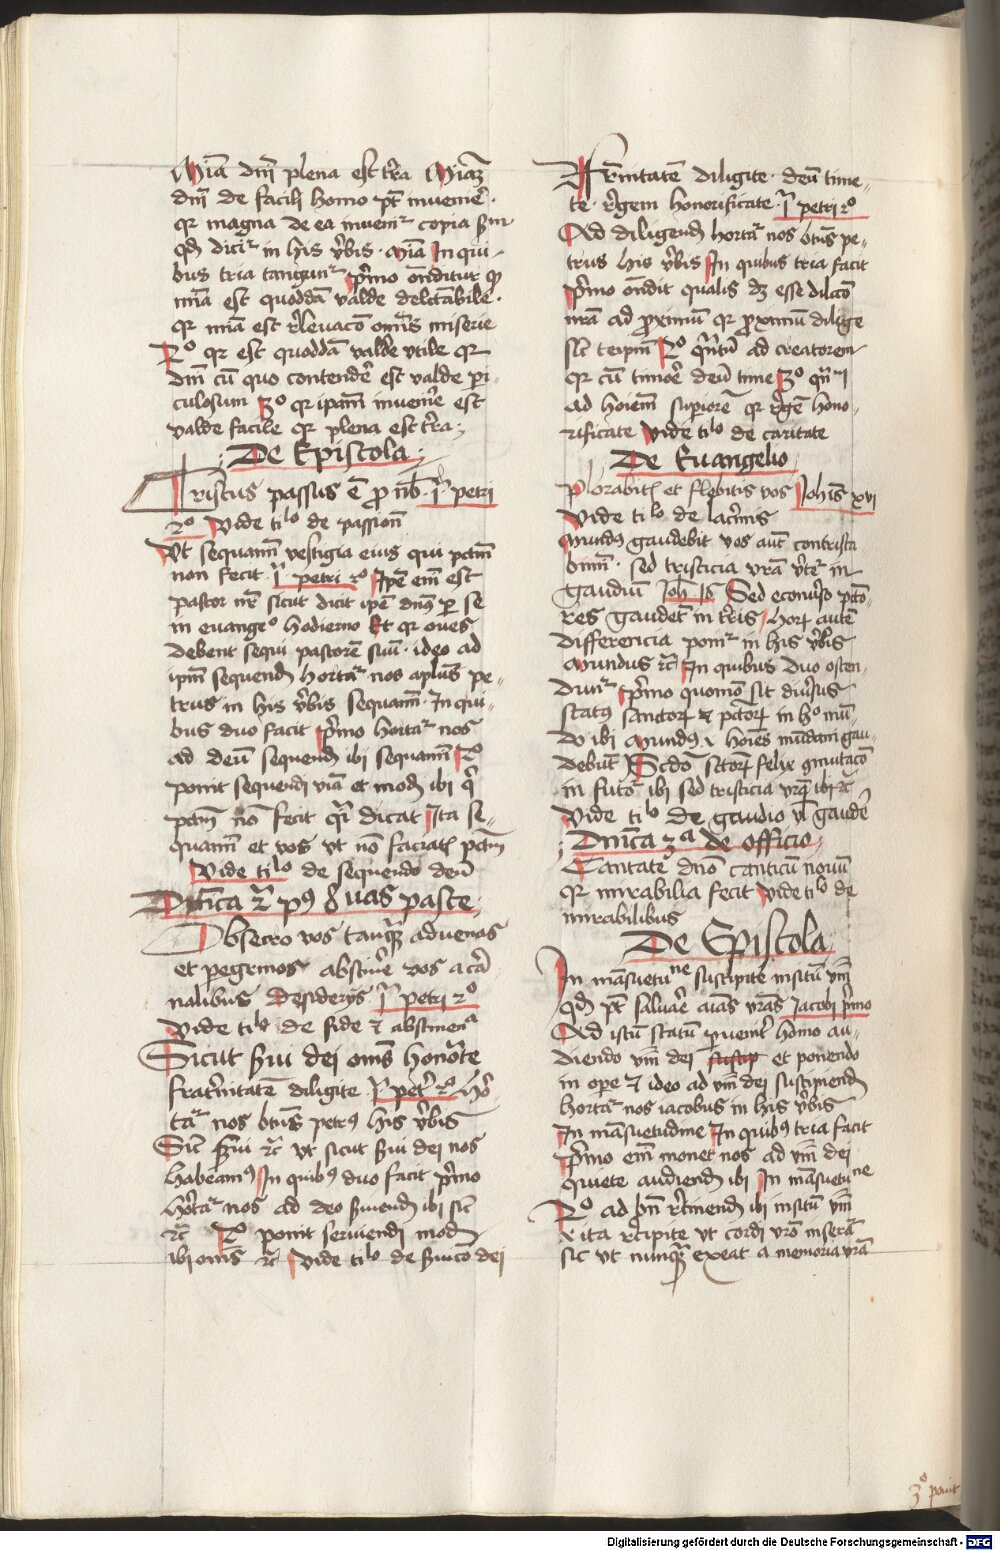 Mīa dn̄i plena est tr̄a Mīaꝫ
dn̄i de facili homo pt̄ inuenīe ·
qr magna de ea inuenit᷑ copia sm
qd̄ dicit᷑ in his v̄bis · mīa In qui-
bus tria tangunt᷑ p̄mo on̄ditur qꝫ
mīa est quoddā valde delectabile ·
qr mīa est r̄leuacō om̄s miserie
2º qr est quoddā valde vtile qr
dn̄i cū quo contendēe est valde pi-
culosum 3º qr ipam̄ inuenīe est
valde facile qr plena est tr̄a ;
; De Epistola ;
Cristus passus ē pro nb̄ · j petri
2º Vide tilo de passion̄
Vt sequam̄ vestigia eius qui pctm̄
non fecit j petri 2º Ipē em̄ est
pastor nr̄ sicut dicit ipē dn̄s per se
in euangeº hodierno Et qr oues
debent sequi pastorē suū · ideo ad
ipm̄ sequend̄ hortat᷑ nos apl̄us pe-
trus in his v̄bis sequam̄ · In qui-
bus duo facit p̄mo hortat᷑ nos
ad deū sequend̄ ibi sequam̄ 2º
ponit sequendi viā et mod̄ ibi q̄
pctm̄ nō fecit q̄i dicat Ita se-
quam̄ et vos vt nō faciatꝭ pctm̄
Vide tilo de sequendo deū
Dn̄ica 2ª pꝰ octauas pasce
Obsecro vos tanqꝫ aduenas
et peregrinos abstinēe vos a car̄
nalibus desiderijs j petri 2º
Vide tilo de fide ⁊ abstinenª
Sicut s̄ui dei om̄s honor̄te
fratr̄nitatē diligite j pet̄ 2º Ho᷑
tat᷑ nos btūs petrꝰ his v̄bis
Sic̄ s̄ui ꝛc̄ vt sicut s̄ui dei nos
habeamꝰ In quibꝰ duo facit p̄mo
hortat᷑ nos ad deo s̄uiend̄ ibi sic̄
ꝛc̄ 2º ponit seruiendi mod̄
ibi om̄s ꝛc̄ Vide tilo de s̄uicō dei
Fr̄nitatē diligite · deū time-
te · r̄gem honorificate · j petri 2º
Ad diligend̄ hortat᷑ nos btūs pe-
trus his v̄bis In quibus tria facit
p̄mo on̄dit qualis dꝫ esse dilcō
nr̄a ad proximū qr proximū dilige
sic̄ teipm̄ 2º q̄ntū ad creatorem
qr cū timoēe deū time 3º qn̄
ad hoiem̄ superiorē qr r̄gē hono-
rificate Vide tilo de caritate
De Euangelio
Plorabitꝭ et flebitis vos Johis̄ xvj
Vide tilo de lacr̄mis
Mundꝰ gaudebit vos aut̄ contrista
bimī · sed tristicia vr̄a v̄tet᷑ in
gaudiū Joh̄ 16 Sed econūso pctō-
res gaudet̄ in tr̄is horꝝ autē
differencia ponit᷑ in his v̄bis
Mundus ꝛc̄ In quibus duo osten-
dunt᷑ p̄mo quomō sit diūsus
statꝰ sanctorꝝ ⁊ pctorꝝ in hº mū-
do ibi Mundꝰ ⁊ hoies̄ mūdani gau-
debūt Scdō sctorꝝ felix gmutacō
in futoꝝ ibi sed tristicia vr̄a ibi ꝛc̄
Vide tilo de gaudio vl̄ gaudēe
; Dn̄ica 3ª de officio ;
Cantate dn̄o canticū nouū
qr mirabilia fecit Vide tilo de
mirabilibus
De Epistola ;
In māsuetune suscipite insitū vm̄
qd̄ pt̄ saluāe aīas vr̄as Jacobi p̄mo
Ad istū statū puenit̄ homo au-
diendo vm̄ dei et ponendo
in ope ⁊ ideo ad vm̄ dei suscipiend̄
hortat᷑ nos iacobus in his v̄bis
In māsuetudine In quibꝰ tria facit
p̄mo em̄ monet nos ad vm̄ dei
quiete audiend̄ ibi In māsuetune
2º ad bn̄ r̄tinend̄ ibi insitū vm̄
⁊ ita r̄cipite vt cordi vr̄o inserā
sic vt nunqꝫ exeat a memoria vr̄a
3º ponit
Digitalisierung gefördert durch die Deutsche Forschungsgemeinschaft - DFG